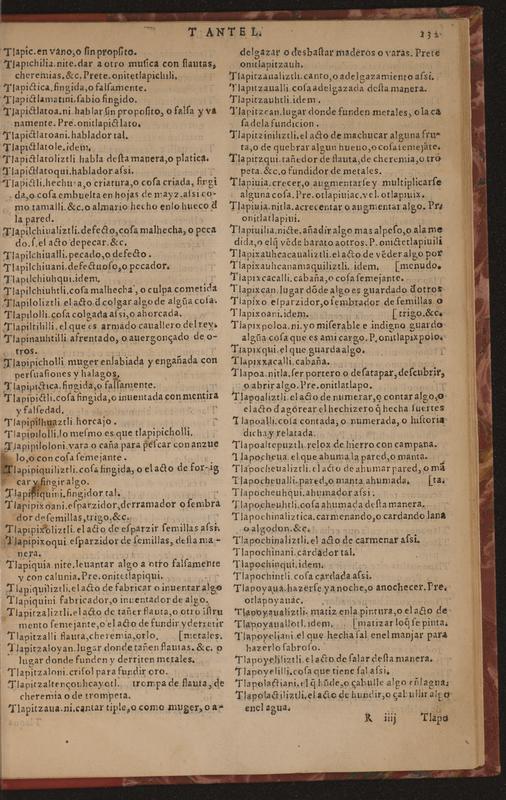 T ANTE L.
132
Tlapic. en vano, o sin proposito.
Tlapichilia. nite. dar a otro musica con flautas,
cheremias. &c. Prete. onitetlapichili.
Tlapictica, fingida, o falsamente.
Tlapictlamatini. sabio fingido.
Tlapictlatoa. ni. hablar sin proposito, o falsa y va
namente. Pre. onitlapictlato.
Tlapictlatoani. hablador tal.
Tlapictlatole. idem.
Tlapictlatoliztli habla desta manera, o platica.
Tlapictlatoqui, hablador assi.
Tlapictli. hechura, o criatura, o cosa criada, fingi
da, o cosa embuelta en hojas de mayz. assi co-
mo tamalli. &c. o almario hecho enlo hueco d
la pared.
Tlapilchiualiztli. defecto, cosa malhecha, o peca
do. s. el acto de pecar. &c.
Tlapilchiualli. pecado, o defecto.
Tlapilchiuani. defectuoso, o peccador.
Tlapilchiuhqui. idem.
Tlapilchiuhtli. cosa malhecha, o culpa cometida
Tlapiloliztli. el acto d colgar algo de algũa cosa.
Tlapilolli. cosa colgada assi, o ahorcada.
Tlapiltihilli. el que es armado cauallero del rey.
Tlapinauhtilli afrentado, o auergonçado de o-
tros.
Tlapipicholli muger enlabiada y engañada con
persuasiones y halagos.
Tlapipictica. fingida, o falsamente.
Tlapipictli. cosa fingida, o inuentada con mentira
y falsedad.
Tlapipilhuaztli horcajo.
Tlapipilolli. lo mesmo es que tlapipicholli.
Tlapipiloloni. vara o caña para pescar con anzue
lo, o con cosa semejante.
Tlapipiquiliztli. cosa fingida, o el acto de for-ig
car y fingir algo.
Tlapipiquini. fingidor tal.
Tlapipixoani. esparzidor, derramador o sembra
dor de semillas, trigo, &c.
Tlapipixoliztli. el acto de esparzir semillas assi.
Tlapipixoqui esparzidor de semillas, desta ma-
nera.
Tlapiquia nite. leuantar algo a otro falsamente
y con calunia. Pre. onitetlapiqui.
Tlapiquiliztli, el acto de fabricar o inuentar algo
Tlapiquini fabricador, o inuentador de algo.
Tlapitzaliztli. el acto de tañer flauta, o otro istru
mento semejante, o el acto de fundir y derretir
Tlapitzalli flauta, cheremia, orlo. [metales.
Tlapitzaloyan. lugar donde tañen flautas. &c. o
lugar donde funden y derriten metales.
Tlapitzaloni. crisol para fundir oro.
Tlapitzaltençouhcayotl. trompa de flauta, de
cheremia o de trompeta.
Tlapitzaua. ni. cantar tiple, o como muger, o a-
delgazar o desbastar maderos o varas. Prete
onitlapitzauh.
Tlapitzaualiztli. canto, o adelgazamiento assi.
Tlapitzaualli cosa adelgazada desta manera.
Tlapitzauhtli. idem.
Tlapitzcan. lugar donde funden metales, o la ca
sa dela fundicion.
Tlapitziniliztli. el acto de machucar alguna fru-
ta, o de quebrar algun hueuo, o cosa semejãte.
Tlapitzqui. tañedor de flauta, de cheremia, o trõ
peta. &c. o fundidor de metales.
Tlapiuia. crecer, o augmentarse y multiplicarse
alguna cosa. Pre. otlapiuiac. vel. otlapiuix.
Tlapiuia. nitla. acrecentar o augmentar algo. Pre
onitlatlapiui.
Tlapiuilia. nicte. añadir algo mas al peso, o ala me
dida, o elq̃ vẽde barato aotros. P. onictetlapiuili
Tlapixauhcacaualiztli. el acto de vẽder algo por
Tlapixauhcanamaquiliztli. idem. [menudo.
Tlapixcacalli. cabaña, o cosa semejante.
Tlapixcan. lugar dõde algo es guardado d̃ otros
Tlapixo esparzidor, o sembrador de semillas o
Tlapixoani. idem. [trigo. &c.
Tlapixpoloa. ni. yo miserable e indigno guardo
algũa cosa que es a mi cargo. P. onitlapixpolo.
Tlapixqui. el que guarda algo.
Tlapixxacalli. cabaña.
Tlapoa. nitla. ser portero o desatapar, descubrir,
o abrir algo. Pre. onitlatlapo.
Tlapoaliztli. el acto de numerar, o contar algo, o
el acto d̃ agorear el hechizero q̃ hecha suertes
Tlapoalli. cosa contada, o numerada, o historia
dicha y relatada.
Tlapoaltepuztli. relox de hierro con campana.
Tlapocheua. el que ahuma la pared, o manta.
Tlapocheualiztli. el acto de ahumar pared, o mã
Tlapocheualli. pared, o manta ahumada. [ta.
Tlapocheuhqui. ahumador assi.
Tlapocheuhtli. cosa ahumada desta manera.
Tlapochinaliztica. carmenando, o cardando lana
o algodon. &c.
Tlapochinaliztli. el acto de carmenar assi.
Tlapochinani. cardador tal.
Tlapochinqui. idem.
Tlapochintli. cosa cardada assi.
Tlapoyaua. hazerse ya noche, o anochecer. Pre.
otlapoyauac.
Tlapoyaualiztli. matiz enla pintura, o el acto de
Tlapoyauallotl. idem. [matizar loq̃ se pinta.
Tlapoyeliani. el que hecha sal enel manjar para
hazerlo sabroso.
Tlapoyeliliztli. el acto de salar desta manera.
Tlapoyelilli, cosa que tiene sal assi.
Tlapolactiani. el q̃ hũde, o çabulle algo enl agua.
Tlapolactiliztli. el acto de hundir, o çabullir algo
enel agua.
R iiij Tlapo